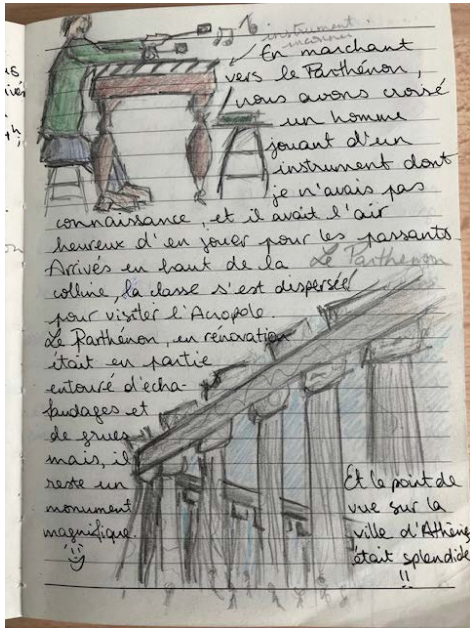 instrument
inconnu
En marchant
vers le Parthénon,
nous avons croisé
un homme
jouant d'un
instrument dont
je n'avais pas
connaissance, et il avait l'air
heureux d'en jouer pour les passants
Arrivés en haut de la
colline, la classe s'est dispersée
pour visiter l'Acropole.
Le Parthénon
Le Parthénon, en rénovation
était en partie
entouré d'écha-
faudages et
de grues
mais, il
reste un
monument
magnifique.
Et le point de
vue sur la
ville d'Athènes
était splendide
!!